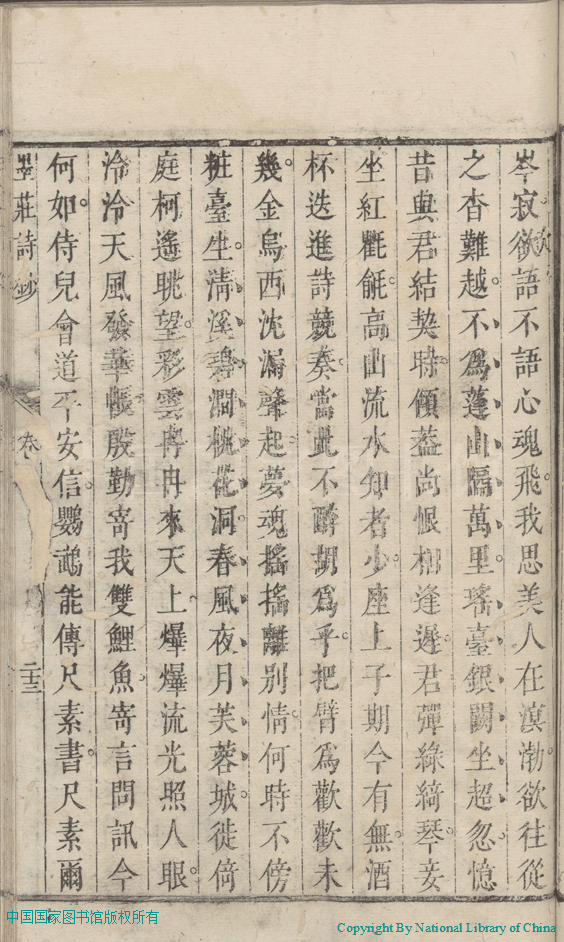 岑寂欲語不語心魂飛我思美人在溟渤欲往從
之杳難越不爲蓬山隔萬里瑤臺銀闕坐超忽憶
昔與君結契時傾葢尚恨相逢遲君彈綠綺琴妾
坐紅氍毹高山流水知者少座上子期今有無酒
杯迭進詩競奏當此不醉胡爲乎把臂爲歡歡未
幾金烏西沈漏聲起夢魂搖搖離別情何時不傍
粧臺生淸溪碧澗桃花洞春風夜月芙蓉城徙倚
庭柯遙眺望彩雲冉冉來天上爗爗流光照人眼
泠泠天風發華帳殷勤寄我雙鯉魚寄言問訊今
何如侍兒會道平安信鸚鵡能傳尺素書尺素爾
莊詩鈔 卷 二十三
中国国家图书馆版权所有
Copyright By National Library of China